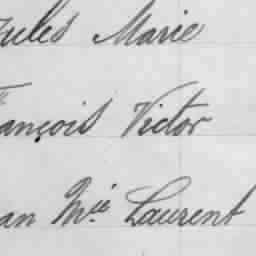 Jules Marie
François Victor
Jean Mie Laurent